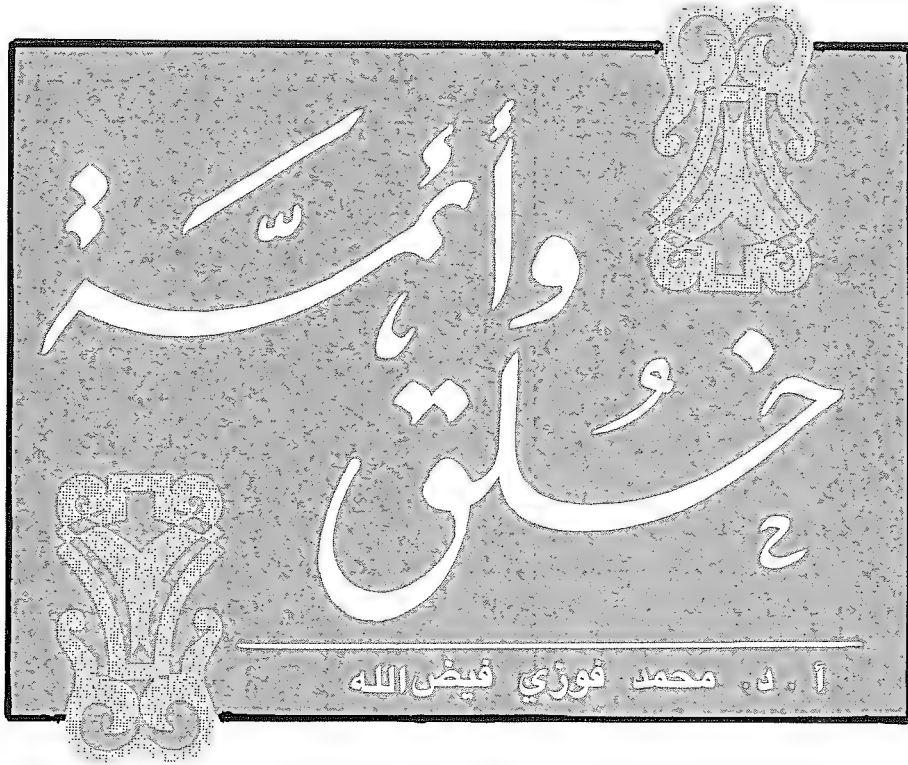 خُلق
وأئمّة
أ . د . محمد فوزي فيض الله